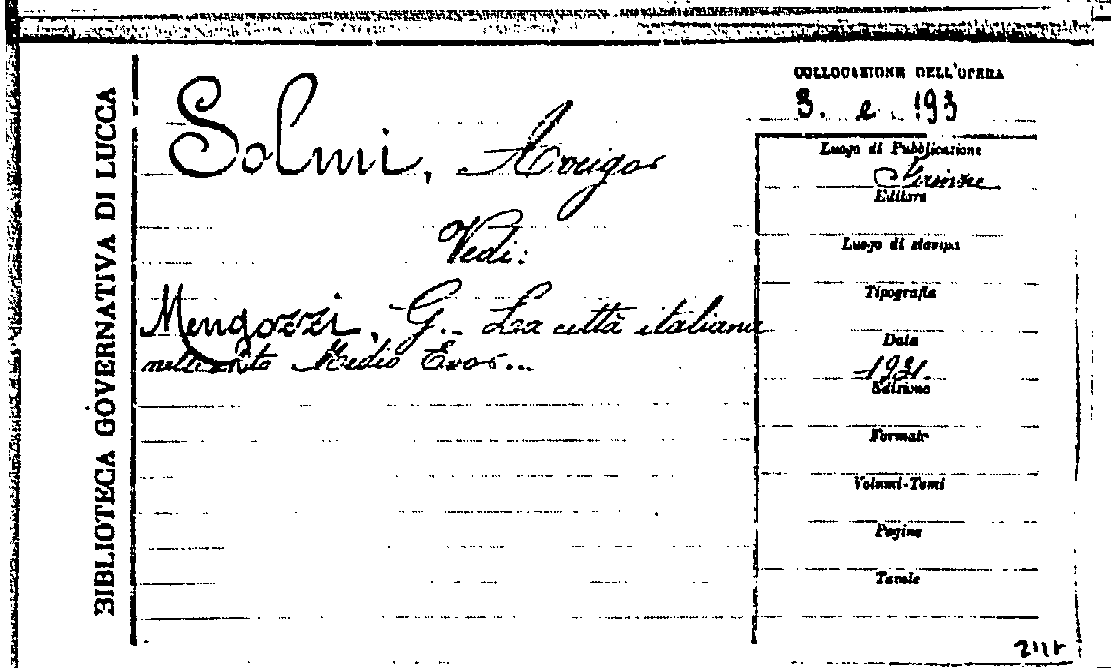 BIBLIOTECA GOVERNATIVA DI LUCCA
COLLOCAZIONE DELL'OPERA
3. e. 193
Solmi, Arrigo
Vedi:
Mengozzi, G. - La città italiana
nell'alto Medio Evo...
Luogo di Pubblicazione
Firenze
Editore
Luogo di stampa
Tipografia
Data
1931.
Edizione
Formato
Volumi-Tomi
Pagine
Tavole